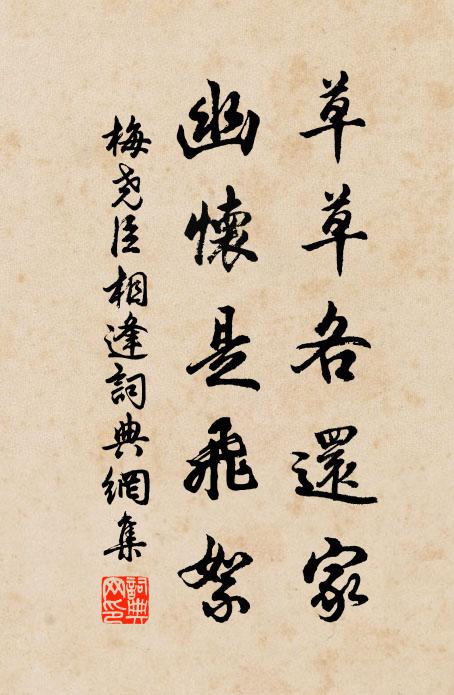 草草各還家
幽懷是飛絮
梅尧臣相逢詞典網集
詞典网印